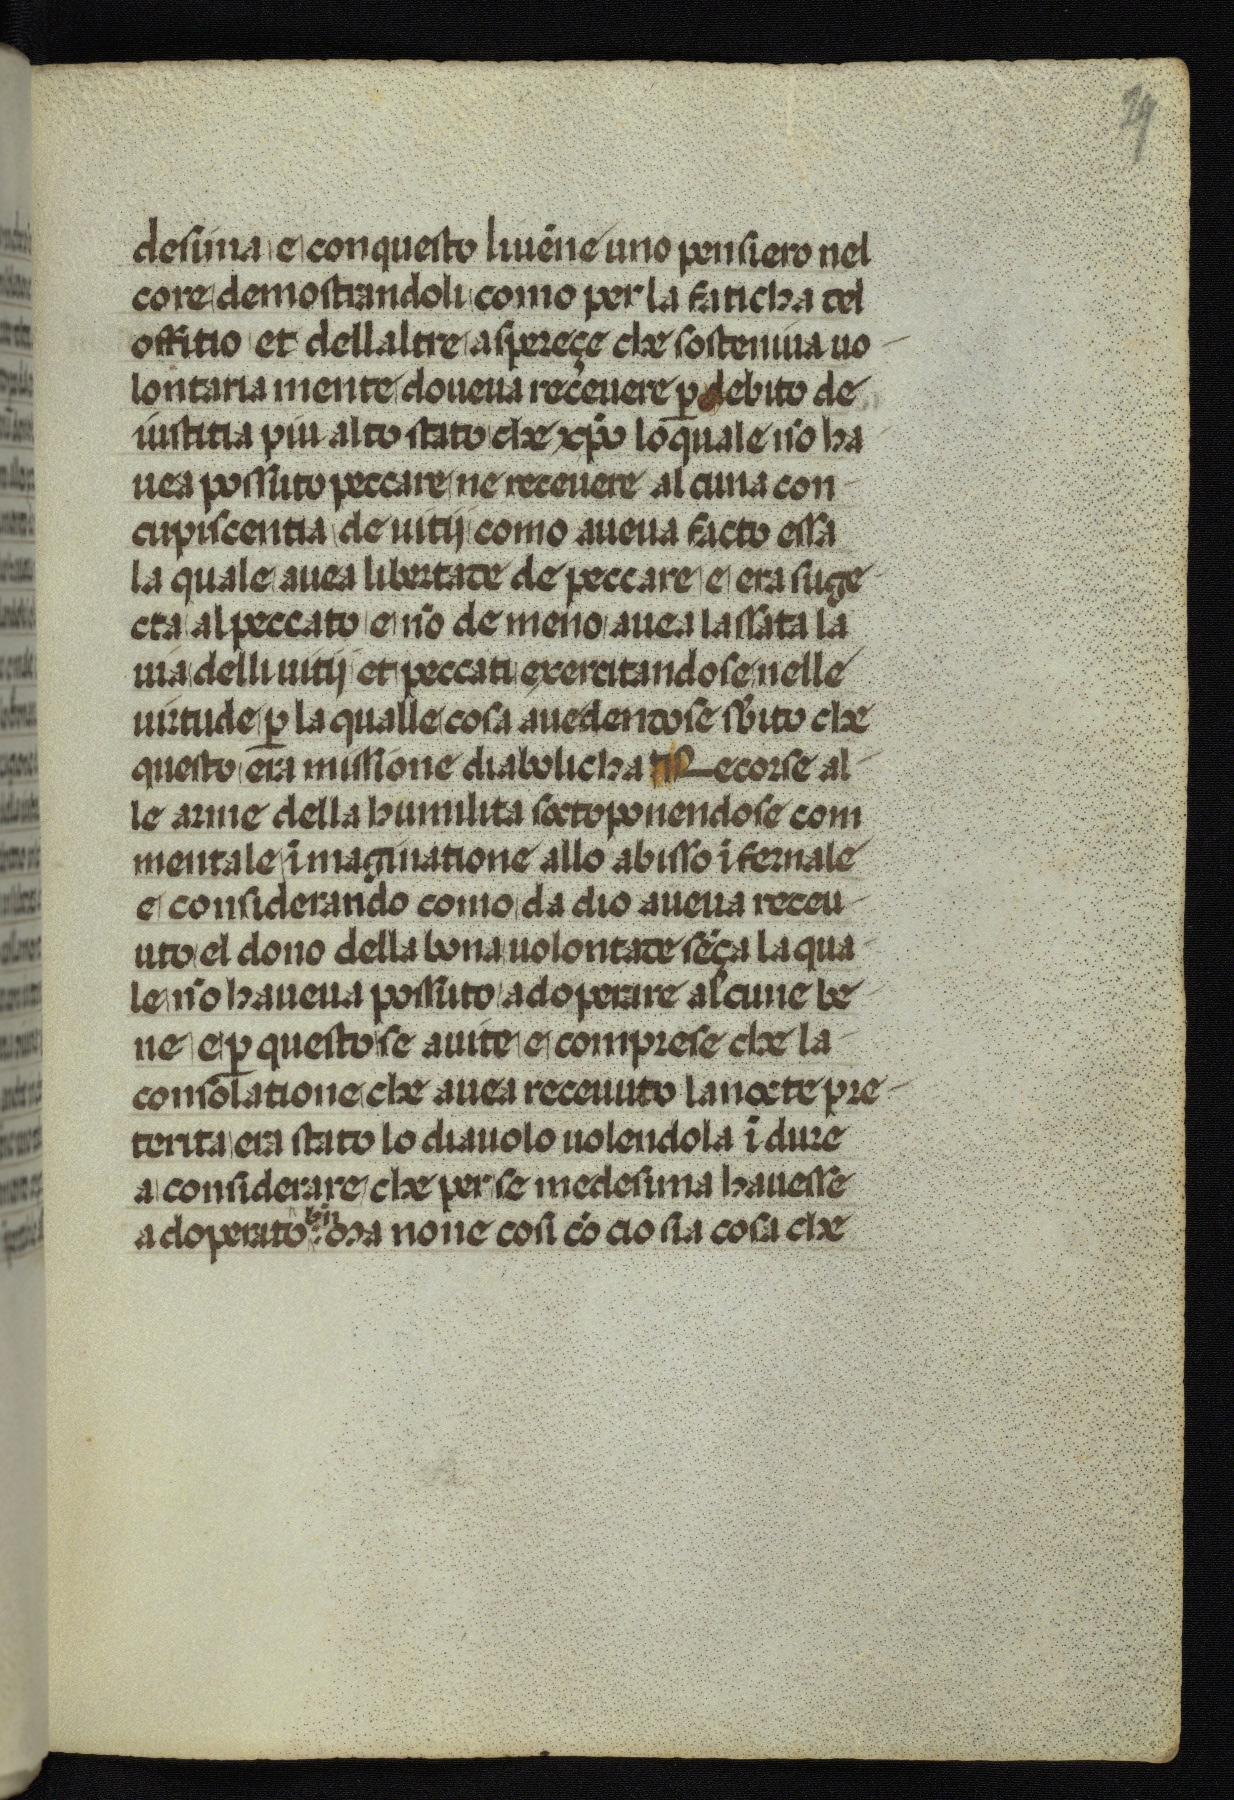 29
desima e con questo li uēne uno pensiero nel
core demostrandoli como per la faticha del
offitio et dell altre aspereçe che sosteniua uo
lontaria mente doueua receuere ꝑ debito de
iustitia piu alto stato che xp̄o lo quale nō ha
uea possuto peccare ne receuere alcuna con
cupiscentia de uitij como aueua facto essa
la quale auea libertate de peccare e era suge
cta al peccato e nō de meno auea lassata la
uia delli uitij et peccati exercitandose nelle
uirtude ꝑ la qualle cosa auedendose sb̄ito che
questo era missione diabolicha Recorse al
le arme della humilita soctoponendose com
mentale īmaginatione allo abisso īfernale
e considerando como da dio aueua receu
uto el dono della bona uolontate sēça la qua
le nō haueua possuto adoperare alcune be
ne e ꝑ questo se auite e comprese che la
consolatione che auea receuuto la nocte pre
terita era stato lo diauolo uolendola īdure
a considerare che per se medesima hauesse
adoperato bn̄ ma non e cosi cō cio sia cosa che